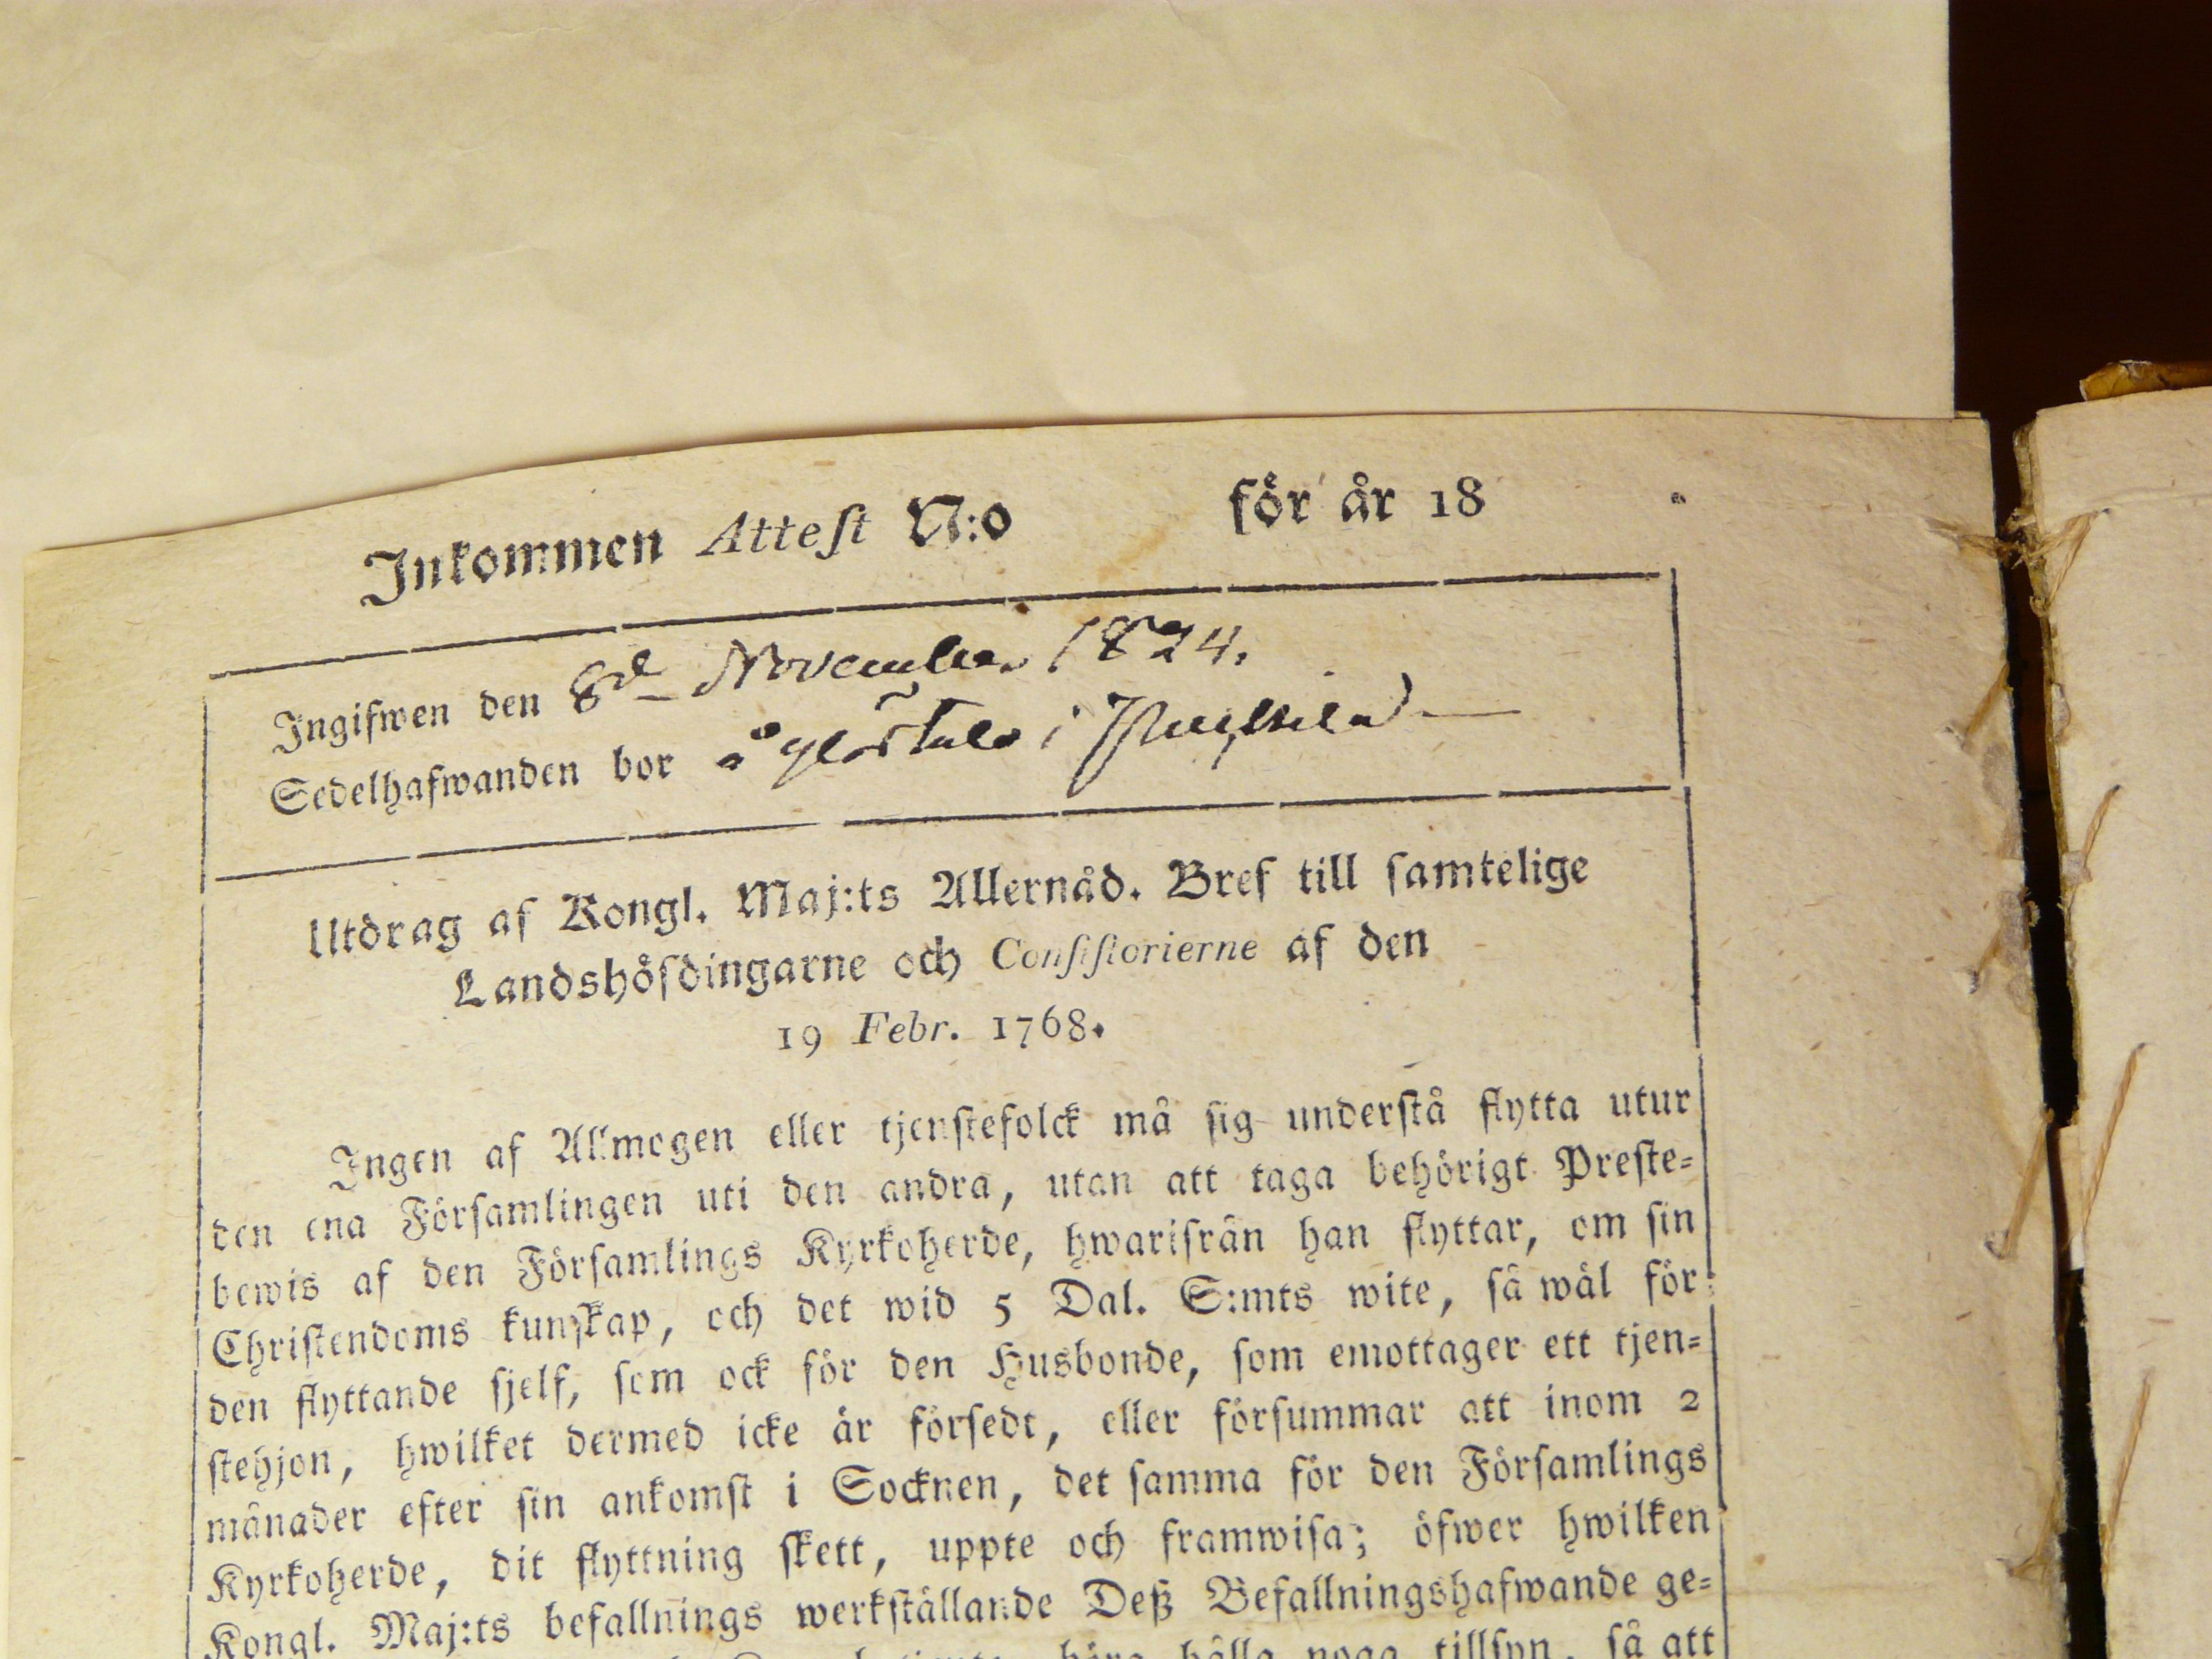 Inkommen Attest N:o för år 18 .
Ingifwen den 8de November 1824.
Sedelhafwanden bor å i
Utdrag af Kongl. Maj:ts Allernåd. Bref till samtelige
Landshöfdingarne och Consistorierne af den
19 Febr. 1768.
Ingen af Allmogen eller tjenstefolck må sig understå flytta utur
den ena Församlingen uti den andra, utan att taga behörigt Preste=
bewis af den Församlings Kyrkoherde, hwarifrån han flyttar, om sin
Christendoms kunskap, och det wid 5 Dal. S:mts wite, så wäl för
den flyttande sjelf, som ock för den Husbonde, som emottager ett tjen=
stehjon, hwilket dermed icke är försedt, eller försummar att inom 2
månader efter sin ankomst i Socknen, det samma för den Församlings
Kyrkoherde, dit flyttning skett, uppte och framwisa; öfwer hwilken
Kongl. Maj:ts befallnings werkställande Deß Befallningshafwande ge=
hålla noga tillsyn, så att